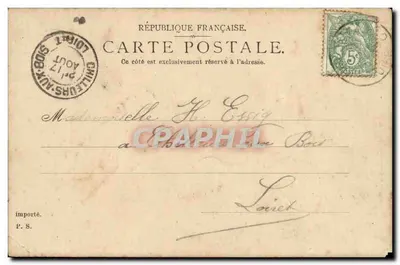 RÉPUBLIQUE FRANÇAISE.
CARTE POSTALE.
Ce côté est exclusivement réservé à l'adresse.
CHILLEURS-AUX-BOIS
LOIRET
17
AOUT
5c
Mademoiselle H. Essig
à Chilleurs aux Bois
Loiret
CPAPHIL
importé.
P. S.